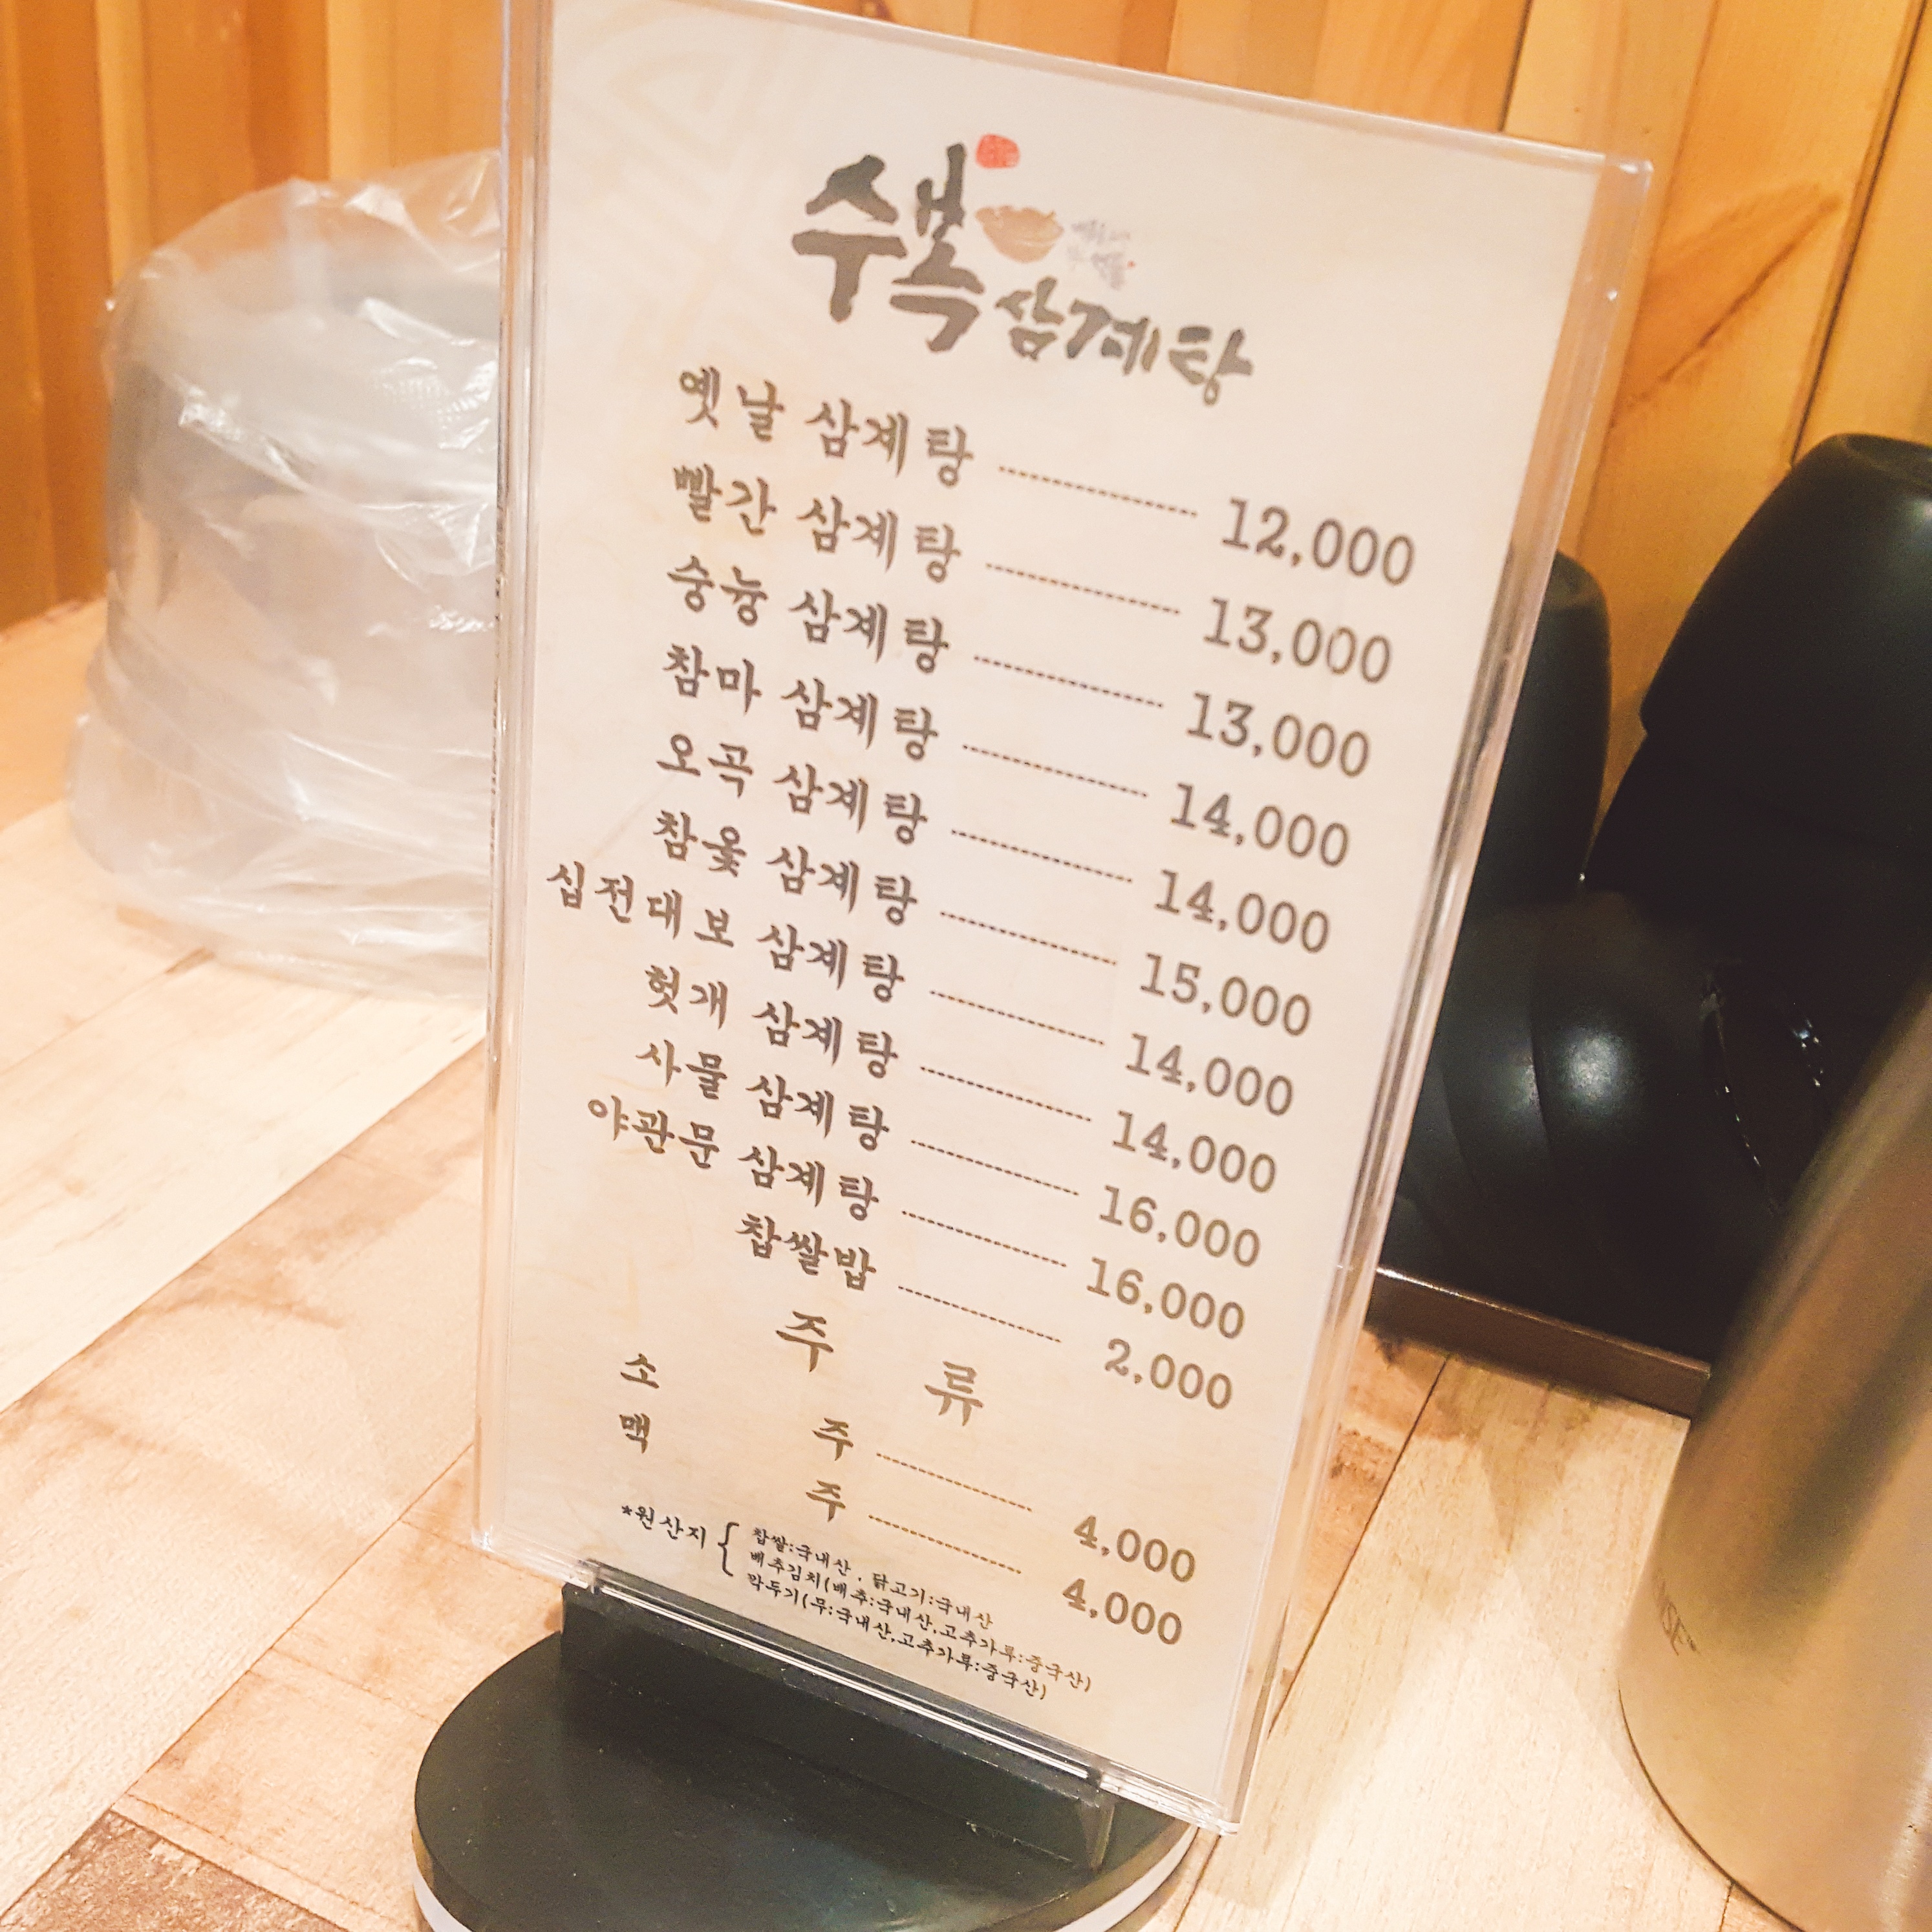 수복 삼계탕
옛날 삼계탕 12,000
빨간 삼계탕 13,000
숭늉 삼계탕 13,000
참마 삼계탕 14,000
오곡 삼계탕 14,000
참옻 삼계탕 15,000
십전대보 삼계탕 14,000
헛개 삼계탕 14,000
사물 삼계탕 16,000
야관문 삼계탕 16,000
찹쌀밥 2,000
주 류
소 주 4,000
맥 주 4,000
*원산지 { 찹쌀:국내산 , 닭고기:국내산
배추김치(배추:국내산,고추가루:중국산)
깍두기(무:국내산,고추가루:중국산)